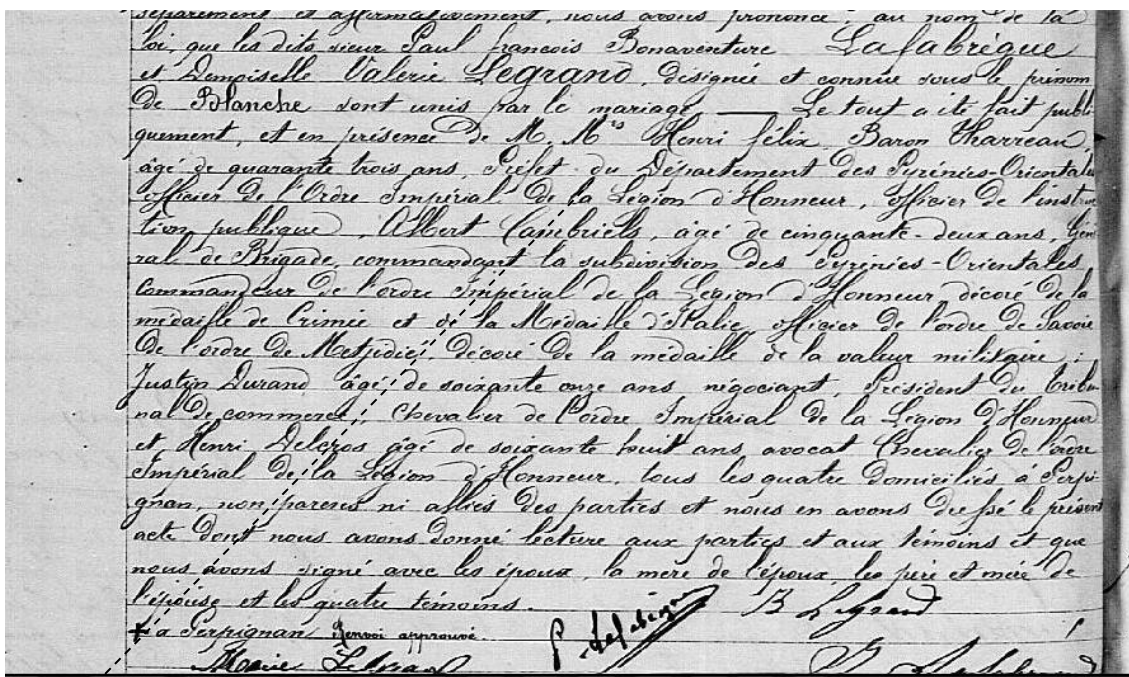 séparément et affirmativement, nous avons prononcé, au nom de la
loi, que les dits sieur Paul françois Bonaventure Lafabrègue
et Demoiselle Valérie Legrand, désignée et connue sous le prénom
de Blanche sont unis par le mariage. — Le tout a été fait publi-
quement, et en présence de M. Mrs Henri félix, Baron Tharreau,
âgé de quarante trois ans, Préfet du Département des Pyrénées-Orientales
officier de l'Ordre Impérial de la Légion d'Honneur, officier de l'instruc
tion publique, Albert Cambriels, âgé de cinquante-deux ans, Géné
ral de Brigade, commandant la subdivision des Pyrénées-Orientales,
Commandeur de l'ordre Impérial de la Légion d'Honneur décoré de la
médaille de Crimée et de la Médaille d'Italie, officier de l'ordre de Savoie
de l'ordre de Metjidié, décoré de la médaille de la valeur militaire ;
Justin Durand âgé de soixante onze ans, négociant, Président du Tribu
nal de commerce, Chevalier de l'ordre Impérial de la Légion d'Honneur
et Henri Delcros âgé de soixante huit ans, avocat Chevalier de l'ordre
Impérial de la Légion d'Honneur, tous les quatre domiciliés à Perpi-
gnan, non parens ni alliés des parties et nous en avons dressé le présent
acte dont nous avons donné lecture aux parties et aux témoins et que
nous avons signé avec les époux, la mère de l'époux, les père et mère de
l'épouse et les quatre témoins.
B Legrand
à Perpignan Renvoi approuvé.
P. Lafabrègue
Marie Legrand